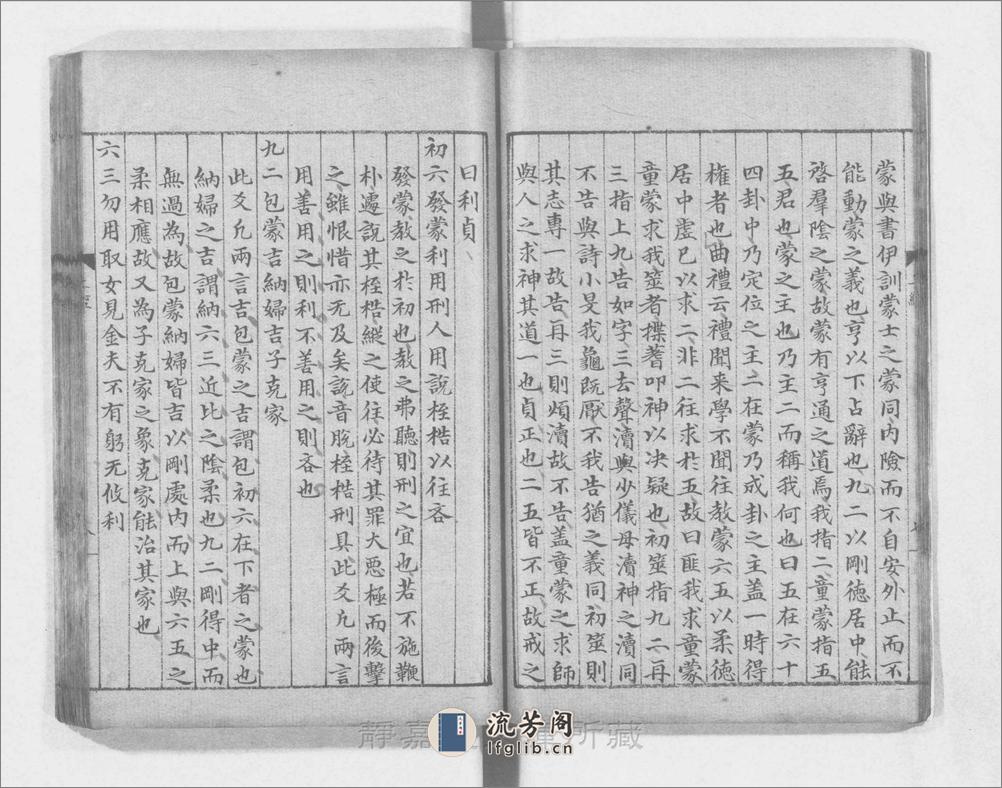 蒙與書伊訓蒙士之蒙同内險而不自安外止而不
能動蒙之義也亨以下占辭也九二以剛德居中能
啓羣陰之蒙故蒙有亨通之道焉我指二童蒙指五
五君也蒙之主也乃主二而稱我何也曰五在六十
四卦中乃定位之主二在蒙乃成卦之主盖一時得
權者也曲禮云禮聞来學不聞往教蒙六五以柔德
居中虚已以求二非二往求於五故曰匪我求童蒙
童蒙求我筮者揲蓍叩神以决疑也初筮指九二再
三指上九告如字三去聲瀆與少儀毋瀆神之瀆同
不告與詩小旻我龜既厭不我告猶之義同初筮則
其志專一故告再三則煩瀆故不告盖童蒙之求師
與人之求神其道一也貞正也二五皆不正故戒之
曰利貞
初六發蒙利用刑人用說桎梏以往吝
發蒙教之於初也教之弗聽則刑之宜也若不施鞭
朴遽說其桎梏縱之使往必待其罪大惡極而後擊
之雖恨惜亦无及矣說音脫桎梏刑具此爻凡兩言
用善用之則利不善用之則吝也
九二包蒙吉納婦吉子克家
此爻凡兩言吉包蒙之吉謂包初六在下者之蒙也
納婦之吉謂納六三近比之陰柔也九二剛得中而
無過為故包蒙納婦皆吉以剛處内而上與六五之
柔相應故又為子克家之象克家能治其家也
六三勿用取女見金夫不有躬无攸利
流芳阁
lfglib.cn
靜嘉
所藏